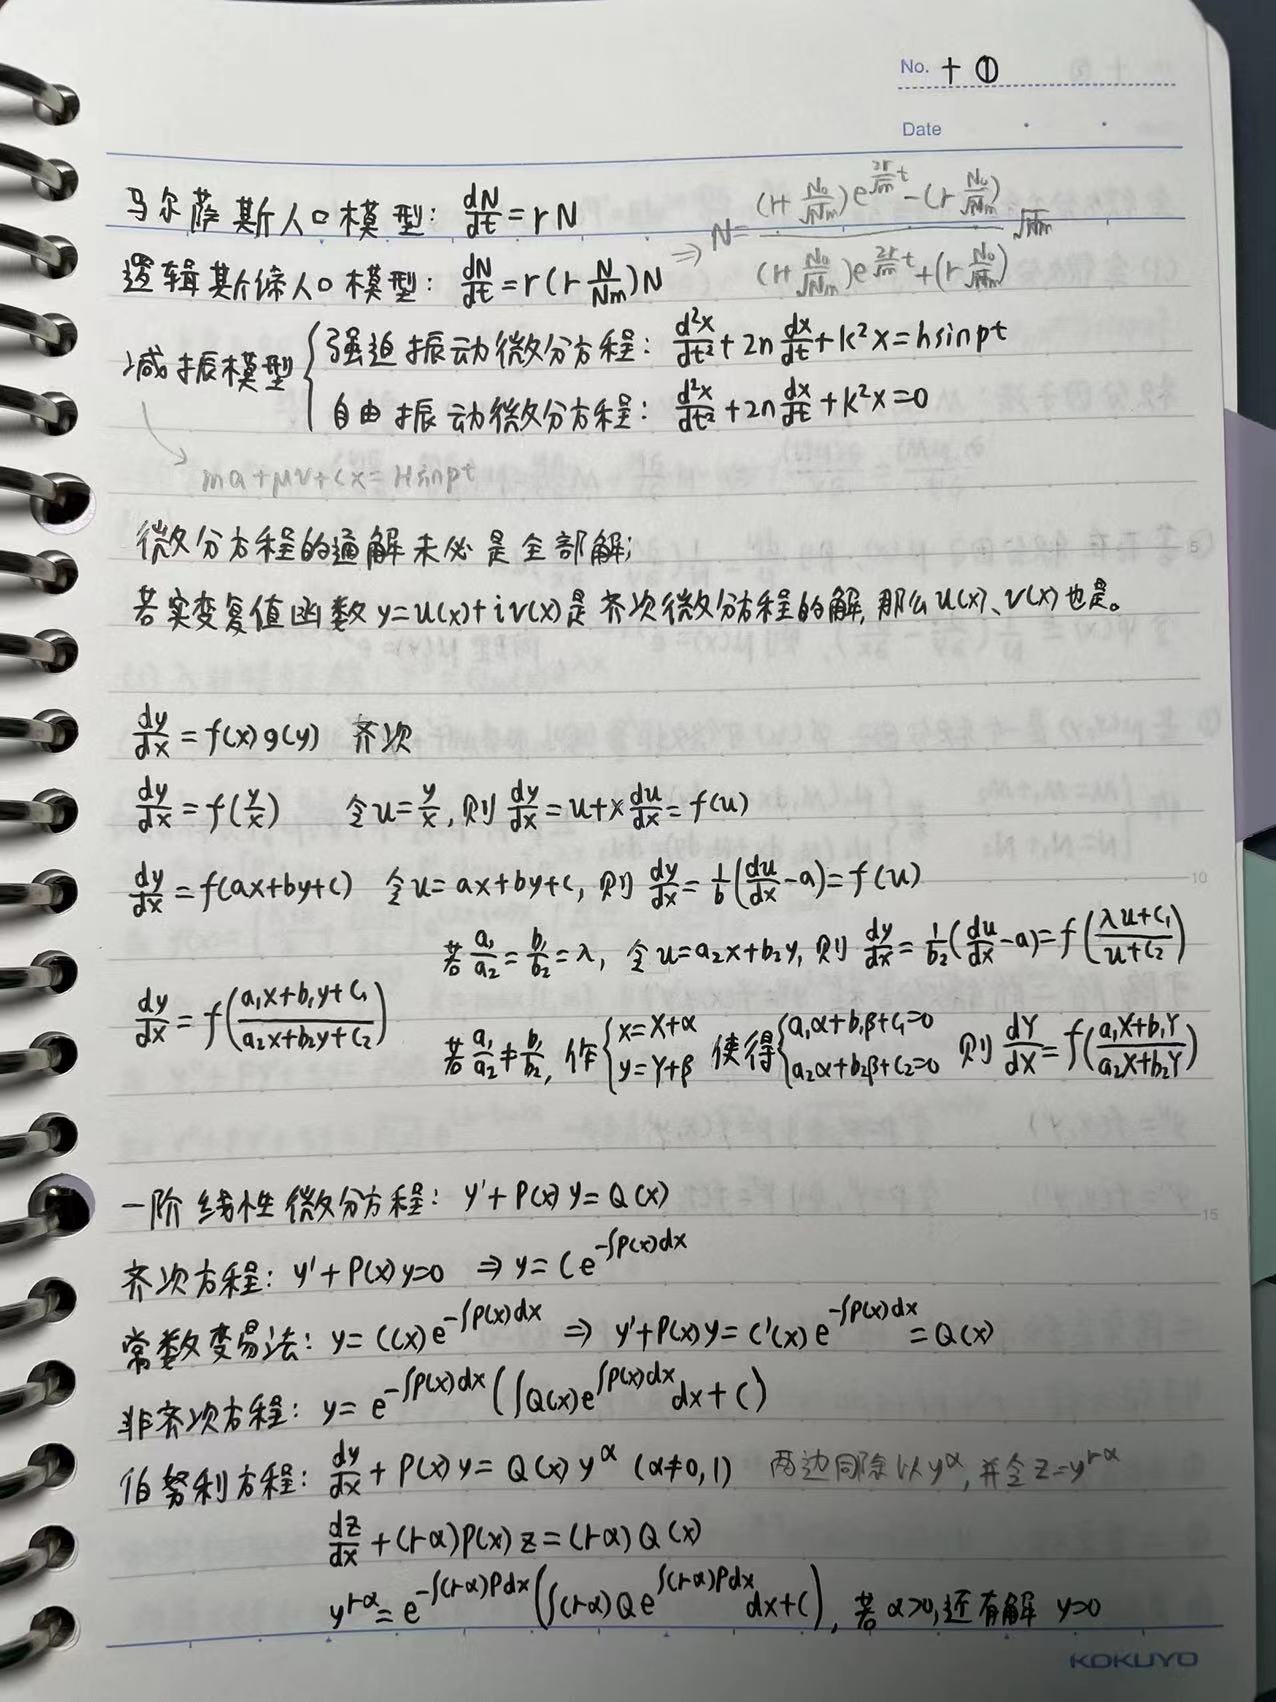 No. 十 ①
Date
马尔萨斯人口模型: dN/dt = rN
⇒ N = ((1+N₀/√Nm)e^(2r/√m t) - (1-N₀/√Nm)) / ((1+N₀/√Nm)e^(2r/√m t) + (1-N₀/√Nm)) √Nm
逻辑斯缔人口模型: dN/dt = r(1-N/Nm)N
减振模型 { 强迫振动微分方程: d²x/dt² + 2n dx/dt + k²x = hsinpt
自由振动微分方程: d²x/dt² + 2n dx/dt + k²x = 0
ma+μv+cx=Hsinpt
微分方程的通解未必是全部解;
5
若实变复值函数 y=u(x)+iv(x)是齐次微分方程的解, 那么u(x)、v(x)也是。
dy/dx = f(x)g(y) 齐次
dy/dx = f(y/x) 令u=y/x, 则 dy/dx = u+x du/dx = f(u)
dy/dx = f(ax+by+c) 令u=ax+by+c, 则 dy/dx = 1/b(du/dx-a) = f(u)
10
若 a₁/a₂ = b₁/b₂ = λ, 令 u=a₂x+b₂y, 则 dy/dx = 1/b₂(du/dx-a) = f((λu+c₁)/(u+c₂))
dy/dx = f((a₁x+b₁y+c₁)/(a₂x+b₂y+c₂))
若 a₁/a₂ ≠ b₁/b₂, 作 {x=X+α y=Y+β 使得 {a₁α+b₁β+c₁=0 a₂α+b₂β+c₂=0 则 dY/dX = f((a₁X+b₁Y)/(a₂X+b₂Y))
一阶线性微分方程: y'+P(x)y=Q(x)
15
齐次方程: y'+P(x)y=0 ⇒ y=Ce^(-∫P(x)dx)
常数变易法: y=C(x)e^(-∫P(x)dx) ⇒ y'+P(x)y=C'(x)e^(-∫P(x)dx)=Q(x)
非齐次方程: y=e^(-∫P(x)dx)(∫Q(x)e^(∫P(x)dx)dx+C)
伯努利方程: dy/dx+P(x)y=Q(x)y^α (α≠0,1) 两边同除以y^α, 并令z=y^(1-α)
dz/dx+(1-α)P(x)z=(1-α)Q(x)
y^(1-α)=e^(-∫(1-α)Pdx)(∫(1-α)Qe^(∫(1-α)Pdx)dx+C), 若α>0,还有解 y=0
KOKUYO